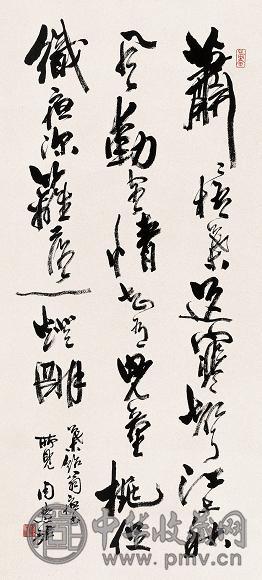 蕭〻梧葉送寒聲江上秋
風動客情知有兒童挑促
織夜深籬落一燈明
葉紹翁夜書
所見 周慧珺
中华收藏网
www.pmv.cn